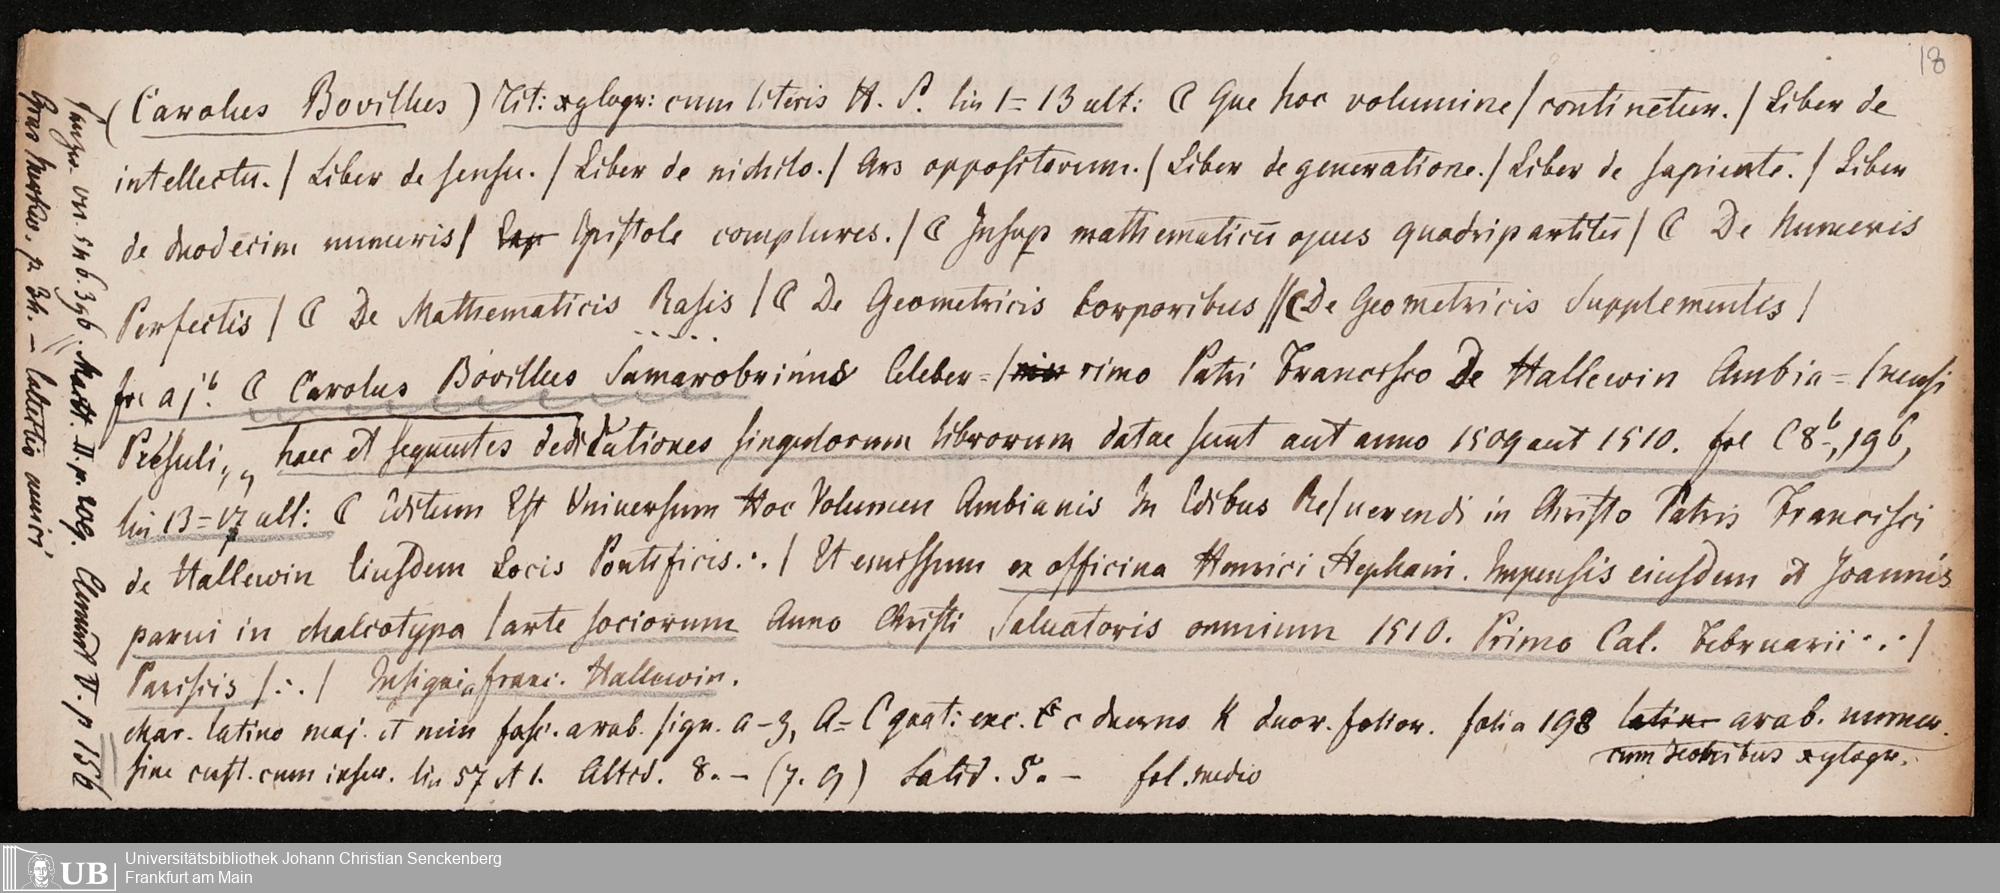 18
(Carolus Bovillus) Tit: xylogr: cum literis H. S. lin 1 = 13 ult: C Que hoc volumine / continētur. / Liber de
intellectu. / Liber de sensu. / Liber de nichilo. / Ars oppositorum. / Liber de generatione. / Liber de sapiente. / Liber
de duodecim numeris / Epistole complures. / C Insup mathematicū opus quadripartitū / C De Numeris
Perfectis / C De Mathematicis Rosis / C De Geometricis Corporibus // C De Geometricis Supplementis /
fol a j b C Carolus Bovillus Samarobrinus Celeber = / rimo Patri Francisco De Hallewin Ambia = / nensi
Presuli,, haec et sequentes dedicationes singulorum librorum datae sunt aut anno 1509 aut 1510. fol C 8 b, 196,
lin 13 = 17 ult: C Editum Est Universum Hoc Volumen Ambianis In Edibus Re / uerendi in Christo Patris Francisci
de Hallewin Eiusdem Loci Pontificis. ∴ / Et emissum ex officina Henrici Stephani. Impensis eiusdem et Joannis
parui in chalcotypa / arte sociorum Anno Christi Saluatoris omnium 1510. Primo Cal. Februarii ∴ /
Parisiis / ∴ / Insignia franc. Hallewin.
char. latino maj. et min fasc. arab. sign. a – z, A = C quat: exc. c duerno K duor. folior. folia 198 arab. numer.
cum xylogr.
sine cust. cum inscr. lin 57 et 1. Altid. 8. – (7. 9) Latid. 5. – fol. medio
Panzer VII. 5 n 6. 396. Maitt. II. p. 209. Clement V. p 156
p 34. – amici
Universitätsbibliothek Johann Christian Senckenberg
Frankfurt am Main
UB